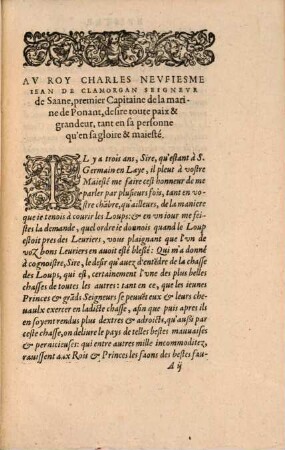 AV ROY CHARLES NEVFIESME
IEAN DE CLAMORGAN SEIGNEVR
de Saane, premier Capitaine de la mari-
ne de Ponant, desire toute paix &
grandeur, tant en sa personne
qu'en sa gloire & maiesté.
IL y a trois ans, Sire, qu'estant à S.
Germain en Laye, il pleut à vostre
Maiesté me faire cest honneur de me
parler par plusieurs fois, tant en vo-
stre chãbre, qu'ailleurs, de la maniere
que ie tenois à courir les Loups: & en vn iour me
feistes la demande, quel ordre ie dounois quand le Loup
estoit pres des Leuriers, vous plaignant que l'vn de
voz bons Leuriers en auoit esté blessé: Qui m'a donné
à cognoistre, Sire, le desir qu'auez d'entẽdre de la chasse
des Loups, qui est, certainement l'vne des plus belles
chasses de toutes les autres: tant en ce, que les ieunes
Princes & grãds Seigneurs se peuuẽt eux & leurs che-
uaulx exercer en ladicte chasse, afin que puis apres ils
en soyent rendus plus dextres & adroicts, qu'aussi par
ceste chasse, on deliure le pays de telles bestes mauuaises
& pernicieuses: qui entre autres mille incommoditez,
rauissent aux Rois & Princes les faons des bestes fau-
A ij